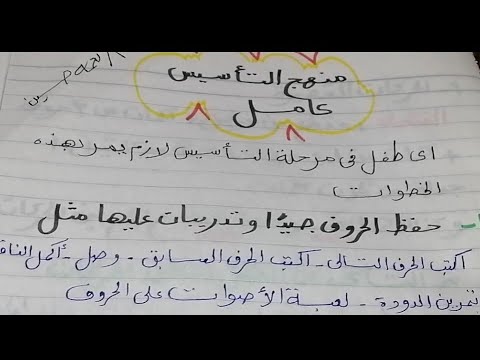 منهج التأسيس
كامل
اى طفل فى مرحلة التأسيس لازم يمر بهذه
الخطوات
حفظ الحروف جيدًا وتدريبات عليها مثل
اكتب الحرف التالى - اكتب الحرف السابق - وصل - أكمل الناق
تمرين الدودة - لعبة الأصوات على الحروف